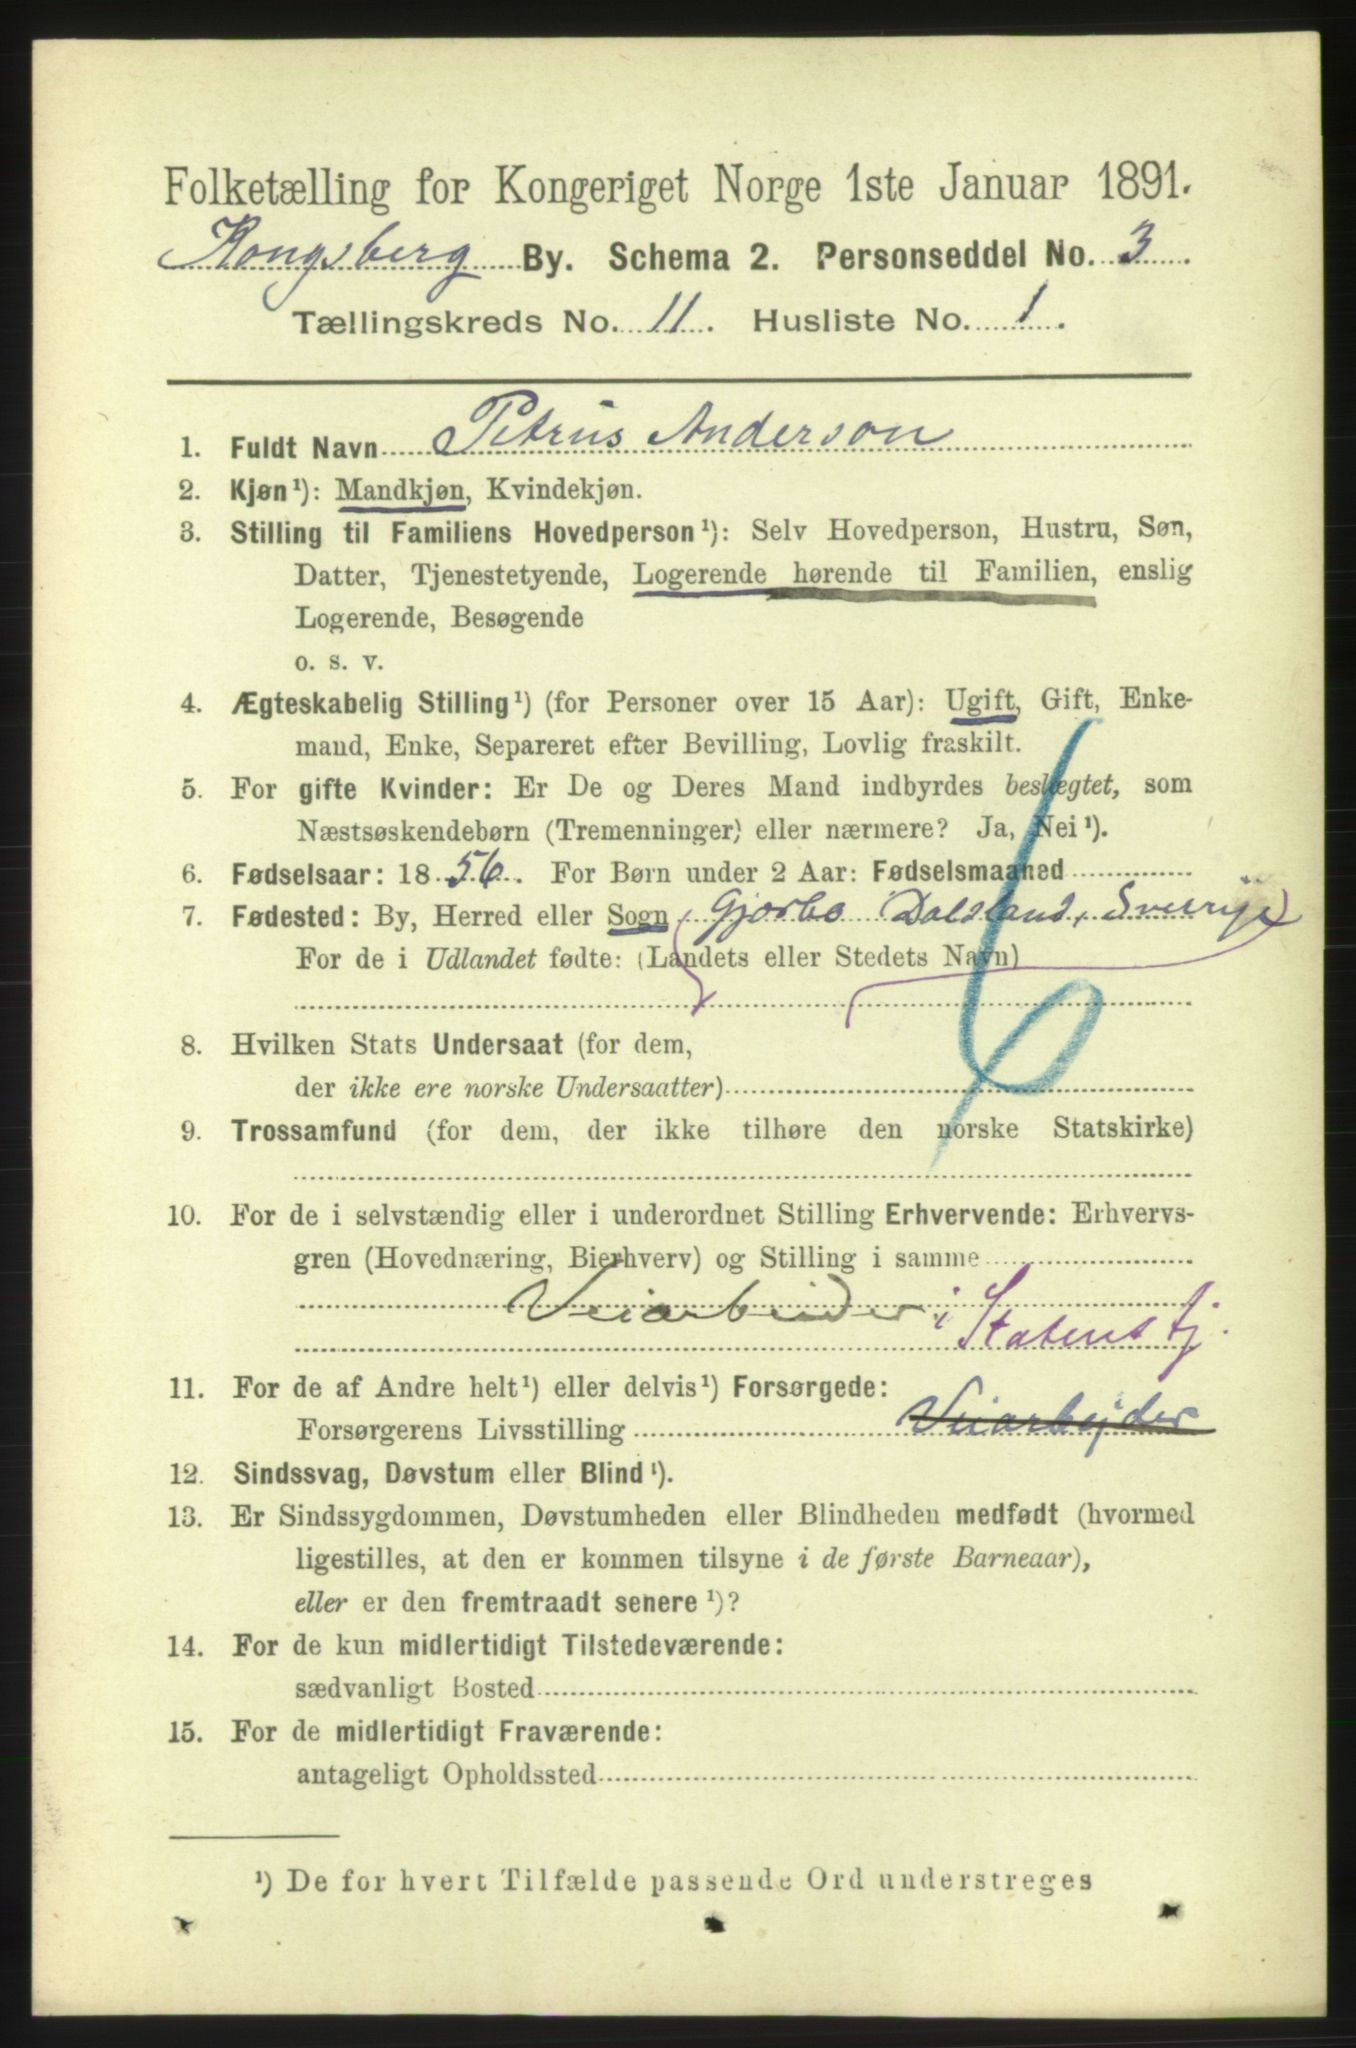 Folketælling for Kongeriget Norge 1ste Januar 1891.
Kongsberg By. Schema 2. Personseddel No. 3.
Tællingskreds No. 11. Husliste No. 1.
1. Fuldt Navn Petrus Anderson
2. Kjøn¹): Mandkjøn, Kvindekjøn.
3. Stilling til Familiens Hovedperson¹): Selv Hovedperson, Hustru, Søn,
Datter, Tjenestetyende, Logerende hørende til Familien, enslig
Logerende, Besøgende
o. s. v.
4. Ægteskabelig Stilling¹) (for Personer over 15 Aar): Ugift, Gift, Enke-
mand, Enke, Separeret efter Bevilling, Lovlig fraskilt.
5. For gifte Kvinder: Er De og Deres Mand indbyrdes beslægtet, som
Næstsøskendebørn (Tremenninger) eller nærmere? Ja, Nei¹).
6. Fødselsaar: 1856. For Børn under 2 Aar: Fødselsmaaned
7. Fødested: By, Herred eller Sogn Gjorbo Dalsland, Sverrige
For de i Udlandet fødte: (Landets eller Stedets Navn)
8. Hvilken Stats Undersaat (for dem,
der ikke ere norske Undersaatter)
9. Trossamfund (for dem, der ikke tilhøre den norske Statskirke)
10. For de i selvstændig eller i underordnet Stilling Erhvervende: Erhvervs-
gren (Hovednæring, Bierhverv) og Stilling i samme
Veiarbeider i Statens tj.
11. For de af Andre helt¹) eller delvis¹) Forsørgede:
Forsørgerens Livsstilling Veiarbejder
12. Sindssvag, Døvstum eller Blind¹).
13. Er Sindssygdommen, Døvstumheden eller Blindheden medfødt (hvormed
ligestilles, at den er kommen tilsyne i de første Barneaar),
eller er den fremtraadt senere¹)?
14. For de kun midlertidigt Tilstedeværende:
sædvanligt Bosted
15. For de midlertidigt Fraværende:
antageligt Opholdssted
¹) De for hvert Tilfælde passende Ord understreges